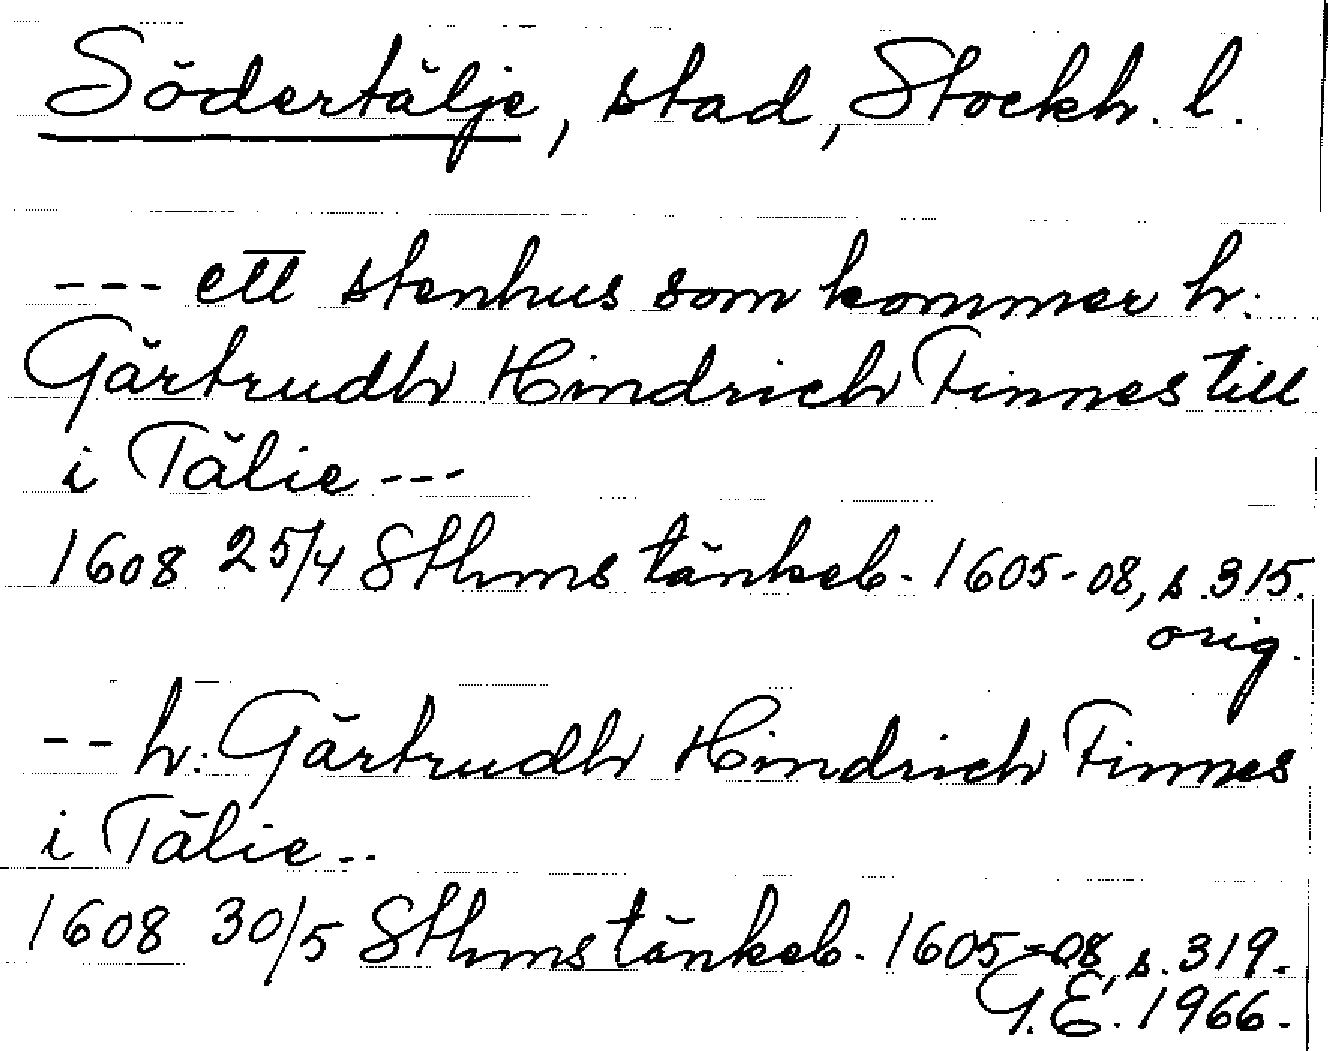 Södertälje, stad, Stockh. l.
--- ett stenhus som kommer h.
Gärtrudh Hindrich Finnes till
i Tälie ---
1608 25/4 Sthms tänkeb. 1605-08, s. 315.
orig.
-- h. Gärtrudh Hindrich Finnes
i Tälie..
1608 30/5 Sthms tänkeb. 1605-08, s. 319.
G.E. 1966.